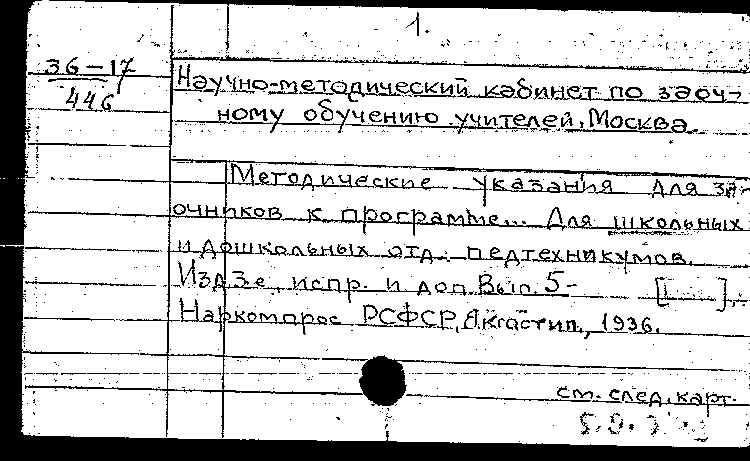 1.
36-17
446
Научно-методический кабинет по заоч-
ному обучению учителей, Москва.
Методические указания для за-
очников к программе... Для школьных
и дошкольных отд. педтехникумов.
Изд 3е, испр. и доп. Вып. 5-
Наркомпрос РСФСР, 1936.
см. след. карт.